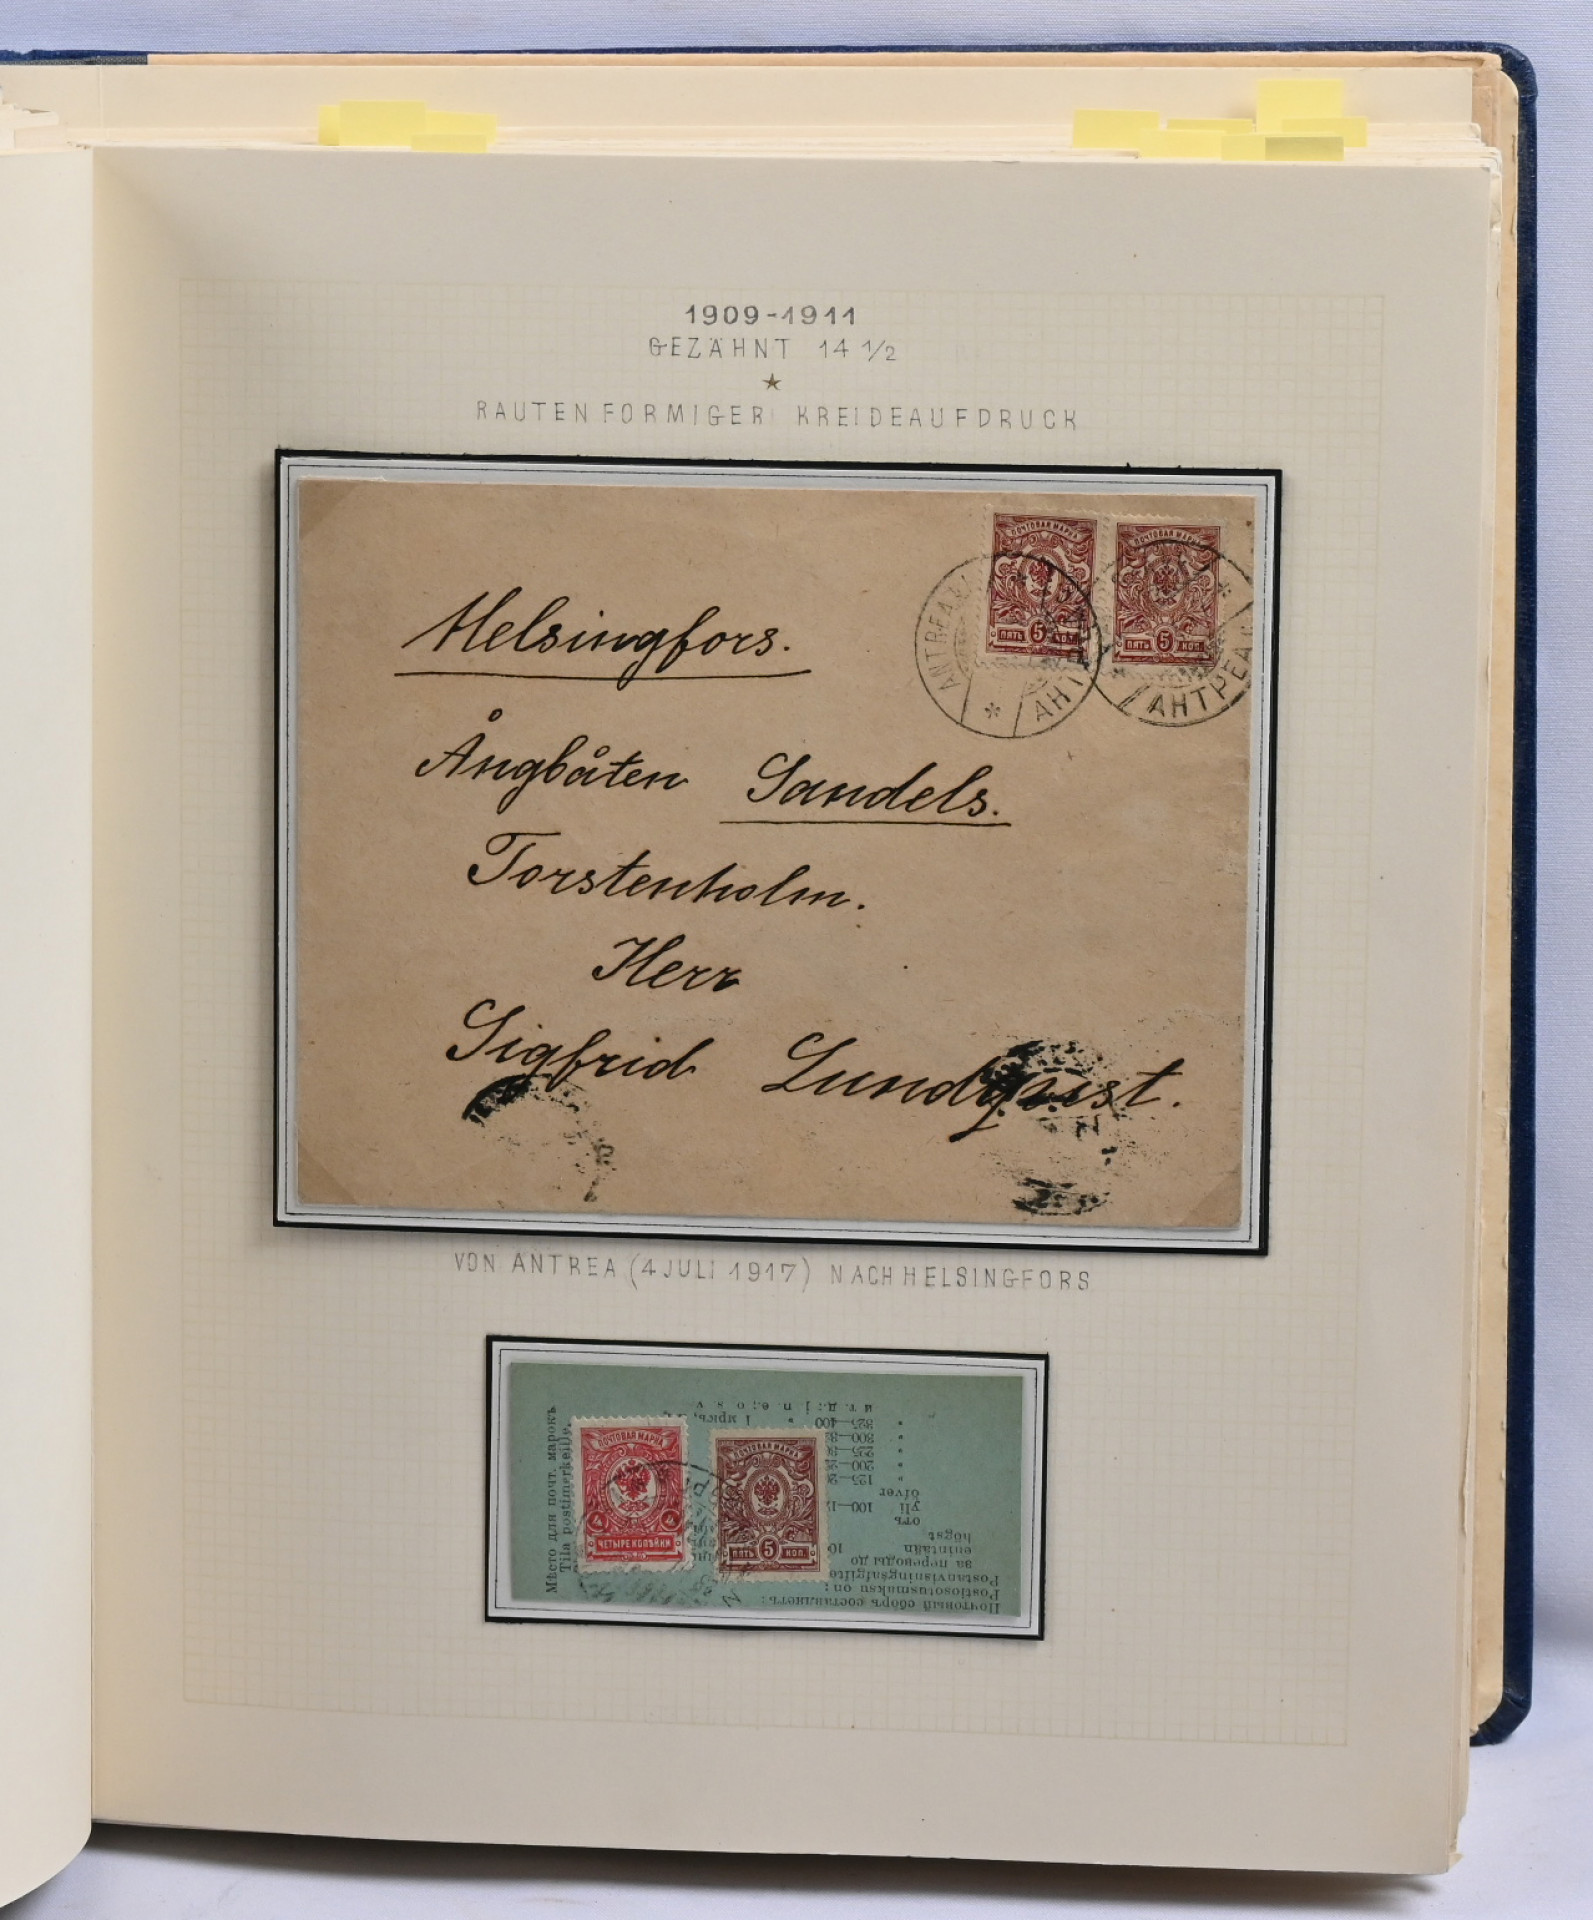 1909-1911
GEZÄHNT 14 1/2
RAUTENFORMIGER KREIDEAUFDRUCK
ПОЧТОВАЯ МАРКА
ПЯТЬ 5 КОП.
ПОЧТОВАЯ МАРКА
ПЯТЬ 5 КОП.
ANTREA
АНТРЕА
Helsingfors.
Ångbåten Sandels.
Torstenholm.
Herr
Sigfrid Lundqvist.
VON ANTREA (4 JULI 1917) NACH HELSINGFORS
Мѣсто для почт. марокъ
Tila postimerkeille.
ПОЧТОВАЯ МАРКА
4 4
ЧЕТЫРЕ КОПѢЙКИ
ПОЧТОВАЯ МАРКА
ПЯТЬ 5 КОП.
Почтовый сборъ составляетъ:
Postiosotusmaksu on:
Postanvisningsafgift
за переводы до
enintään
högst
отъ
yli 100
öfver
125
200
225
300
325—400
и т. д.; j. n. e.; o. s. v.